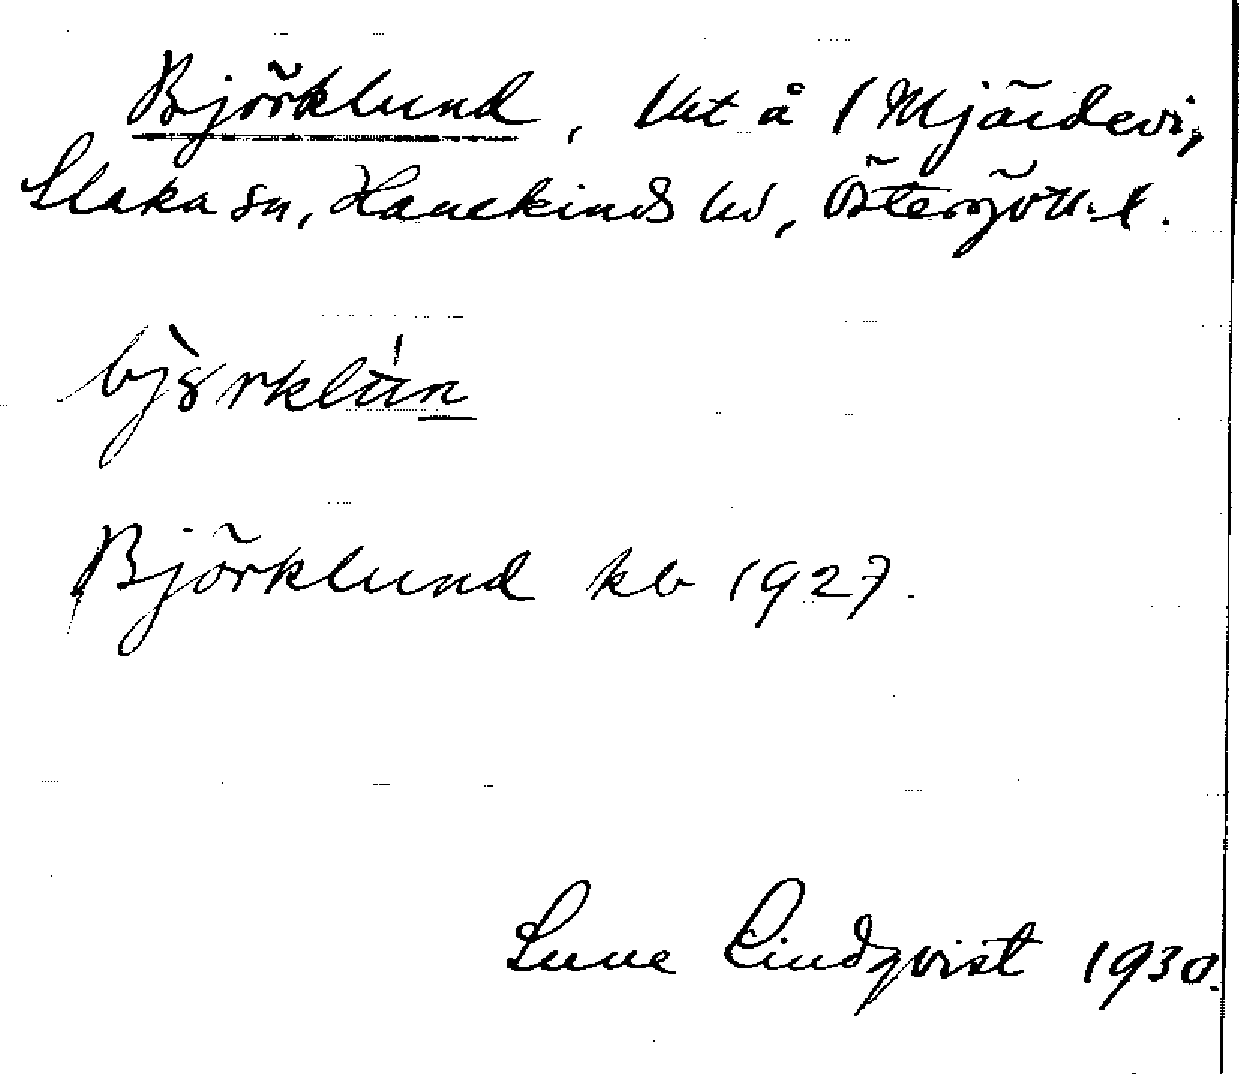 Björklund, lht å 1 Mjärdevi,
Slaka sn, Hanekinds hd, Östergötl. l.
Björklund kb 1927.
Sune Lindqvist 1930.